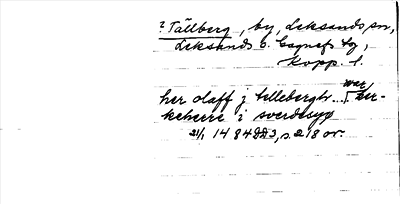 ? Tällberg, by, Leksands sn,
Leksands o. Gagnefs tg,
Kopp. l.
her olaff j tellebergh ... war
kerkeherre i swerdesyø
21/1 1484 DD3, s. 218 or.